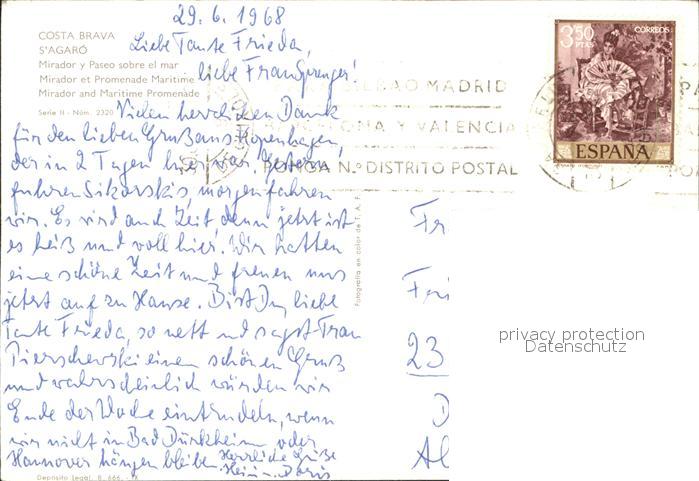 29.6.1968
COSTA BRAVA
S'AGARÓ
Mirador y Paseo sobre el mar
Mirador et Promenade Maritime
Mirador and Maritime Promenade
Serie II - Núm. 2320
Liebe Tante Frieda,
liebe Frau Sprenger!
Vielen herzlichen Dank
für den lieben Gruß aus Kopenhagen,
der in 2 Tagen hier war. Gestern
fuhren Sikorskis, morgen fahren
wir. Es wird auch Zeit, denn jetzt ist
es heiß und voll hier. Wir hatten
eine schöne Zeit und freuen uns
jetzt auf zu Hause. Bist Du, liebe
Tante Frieda, so nett und sagst Frau
einen schönen Gruß
und wahrscheinlich würden wir
Ende der Woche eintrudeln, wenn
wir nicht in Bad Dürkheim oder
Hannover hängen bleiben. Herzliche Grüße
Doris
Depósito Legal, B. 666.
Fotografía en color de T. A. F.
3'50
PTAS
CORREOS
ESPAÑA
BILBAO MADRID
NA Y VALENCIA
PONGA N.º DISTRITO POSTAL
Fr
23
D
Al
privacy protection
Datenschutz